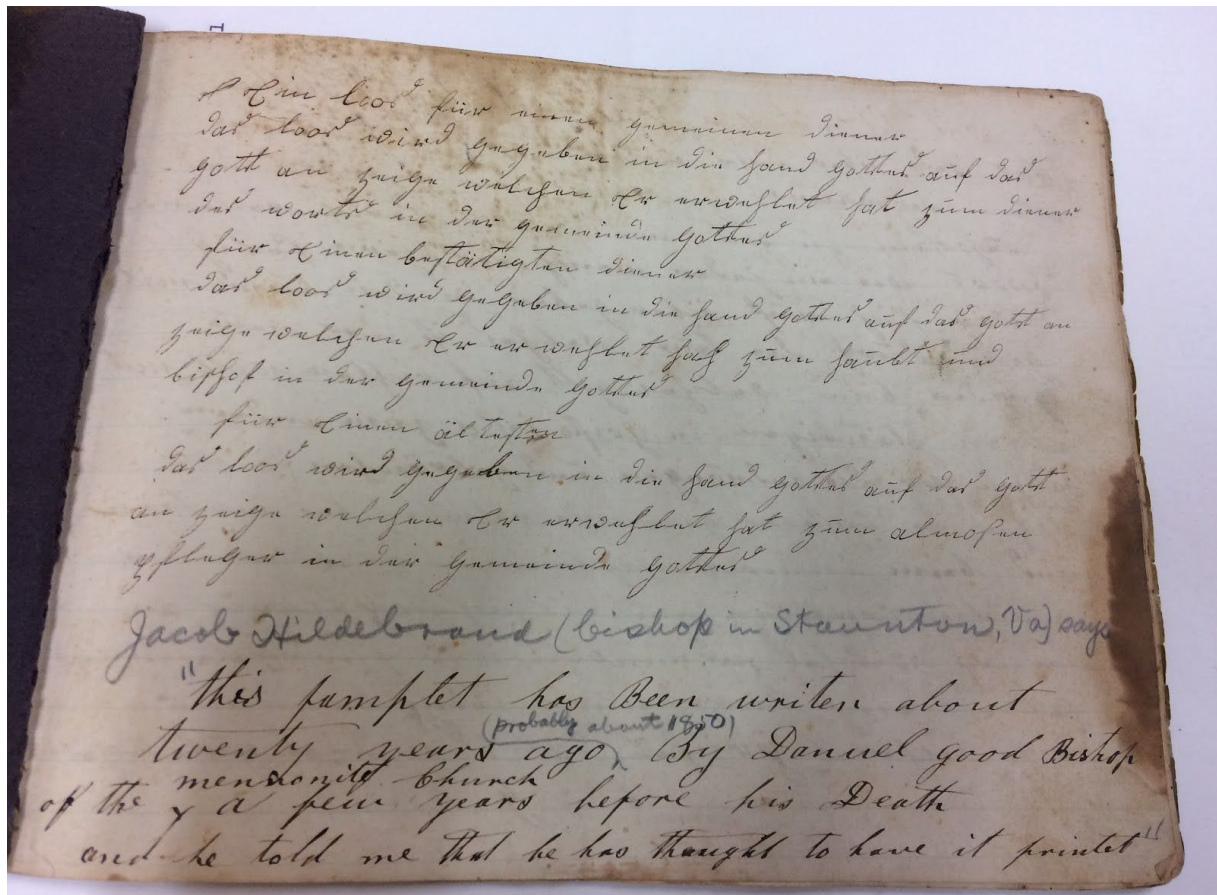 Ein loos für einen gemeinen diener
das loos wird gegeben in die hand gottes auf das
gott an zeige welchen Er erwehlet hat zum diener
des worts in der gemeinde gottes
für Einen bestätigten diener
das loos wird gegeben in die hand gottes auf das gott an
zeige welchen Er erwehlet hat zum haubt und
bishof in der gemeinde gottes
für Einen ältesten
das loos wird gegeben in die hand gottes auf das gott
an zeige welchen Er erwehlet hat zum almosen
pfleger in der gemeinde gottes
Jacob Hildebrand (bishop in Staunton, Va) says
"this pamplet has Been writen about
(probably about 1850)
twenty years ago By Danuel good Bishop
mennonite Church
of the a few years before his Death
and he told me that he has thaught to have it printet"